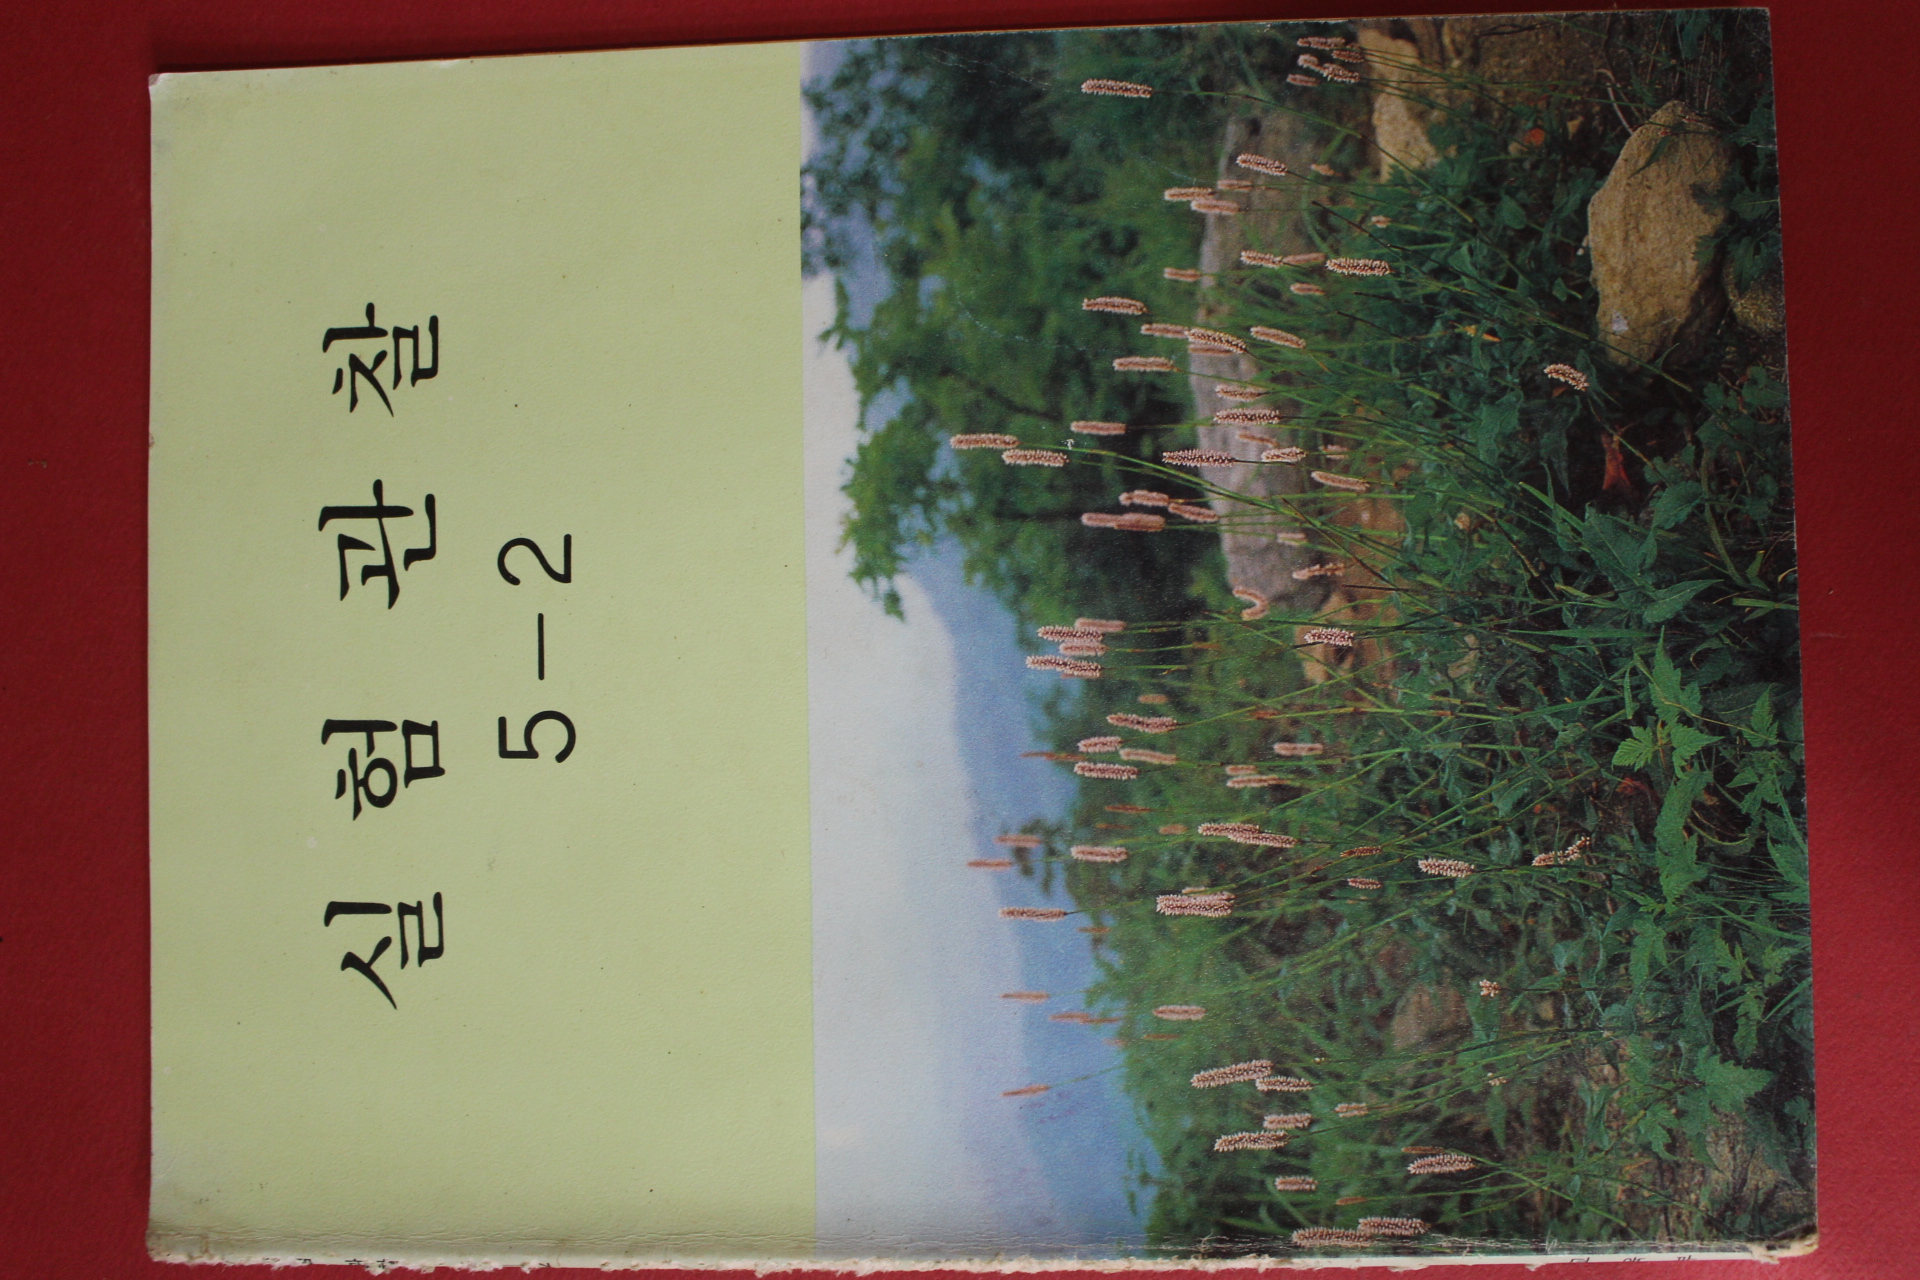 실험 관찰
5-2